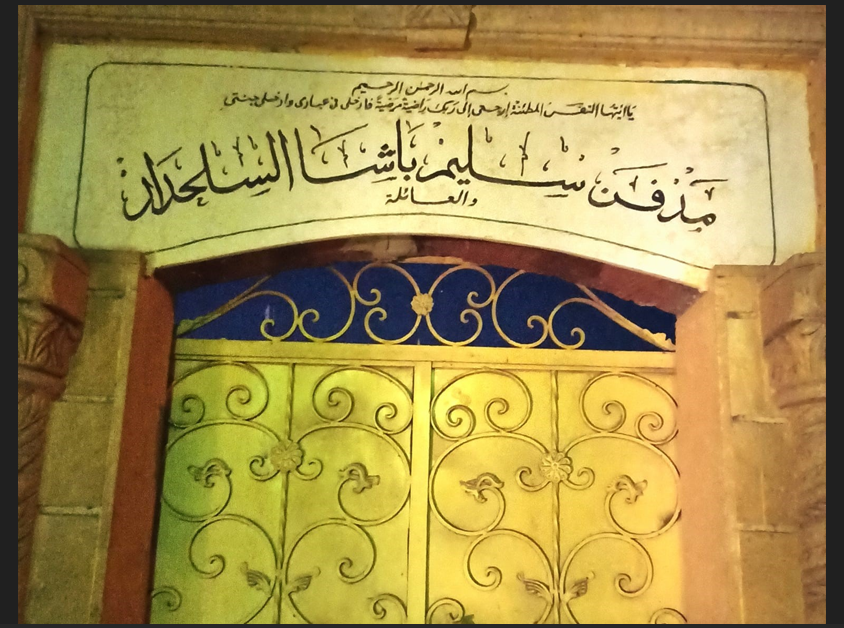 بسم الله الرحمن الرحيم
يا ايتها النفس المطمئنة إرجعى إلى ربك راضية مرضية فادخلى فى عبادى وادخلى جنتى
مدفن سليم باشا السلحدار
والعائلة